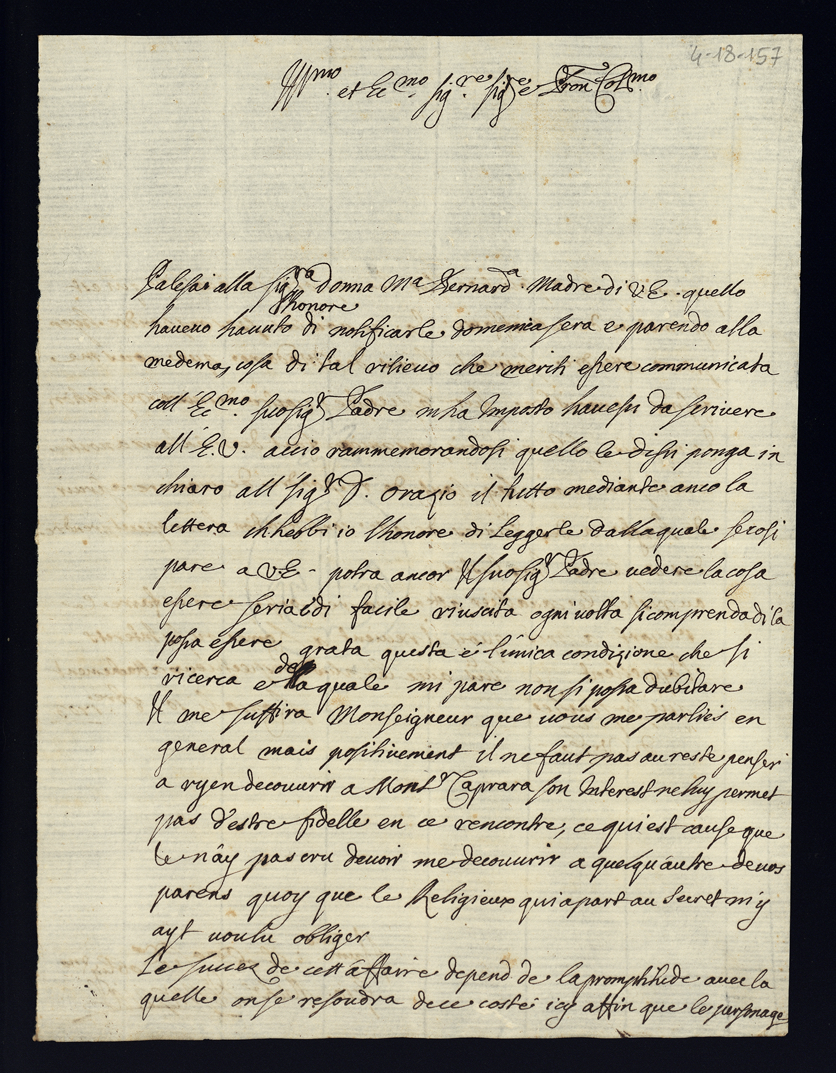 4-18-157
Ill.mo et Ecc.mo Sig.re Sig.re e Pron Col.mo
Palesai alla Sig.ra Donna M.a Bernard.a Madre di V.E. quello
lhonore
haveuo hauuto di notificarle domenica sera e parendo alla
medema, cosa di tal rilieuo che meriti essere communicata
coll' Ecc.mo suo Sig.r Padre m ha Imposto hauessi da scriuere
all' E.V. accio rammemorandosi quello le dissi ponga in
chiaro all Sig.r D. Orazio il tutto mediante anco la
lettera ch hebbi io lhonore di Leggerle dalla quale se cosi
pare a V.E. potra ancor Il suo Sig.r Padre uedere la cosa
essere seria e di facile riuscita ogni uolta si comprenda di la
possa essere grata questa é l'unica condizione che si
ricerca e della quale mi pare non si possa dubitare
Il me suffira Monseigneur que uous me parliés en
general mais positiuement il ne faut pas au reste penser
a ryen decouurir a Mons.r Caprara son Interest ne luy permet
pas d'estre fidelle en ce rencontre, ce qui est cause que
Ie n'ây pas cru deuoir me decouurir a quelqu'autre de uos
parens quoy que le Religieux qui a part au Secret m'y
ayt uoulu obliger
Le succez de cett'affaire depend de la promptitude auec la
quelle on se resoudra de ce costé icy affin que le personage